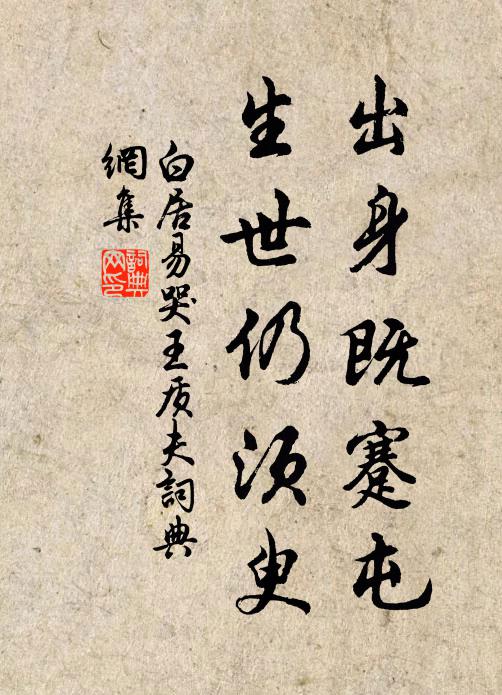 出身既蹇屯
生世仍須臾
白居易哭王质夫詞典
網集
詞典
网印